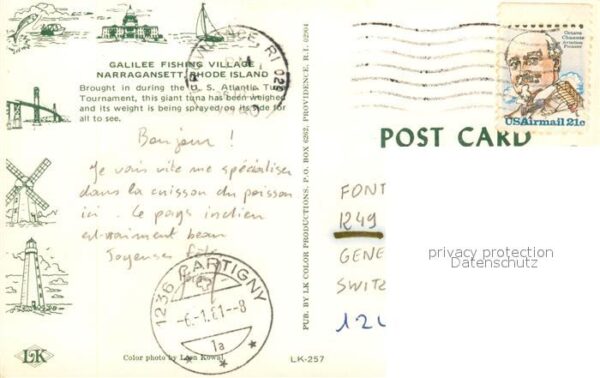 GALILEE FISHING VILLAGE
NARRAGANSETT, RHODE ISLAND
Brought in during the U. S. Atlantic Tuna
Tournament, this giant tuna has been weighed
and its weight is being sprayed on its side for
all to see.
Bonjour !
Je vais vite me spécialiser
dans la cuisson du poisson
ici. Le pays indien
est vraiment beau
Joyeuses
1236 CARTIGNY
-6.-1.81--8
1a
LK
Color photo by Leon Kowal
LK-257
PUB. BY LK COLOR PRODUCTIONS, P.O. BOX 6282, PROVIDENCE, R.I. 02904
PROVIDENCE, RI 029
Octave
Chanute
Aviation
Pioneer
USAirmail 21c
POST CARD
FONT
1249
GENE
SWITZ
12
privacy protection
Datenschutz